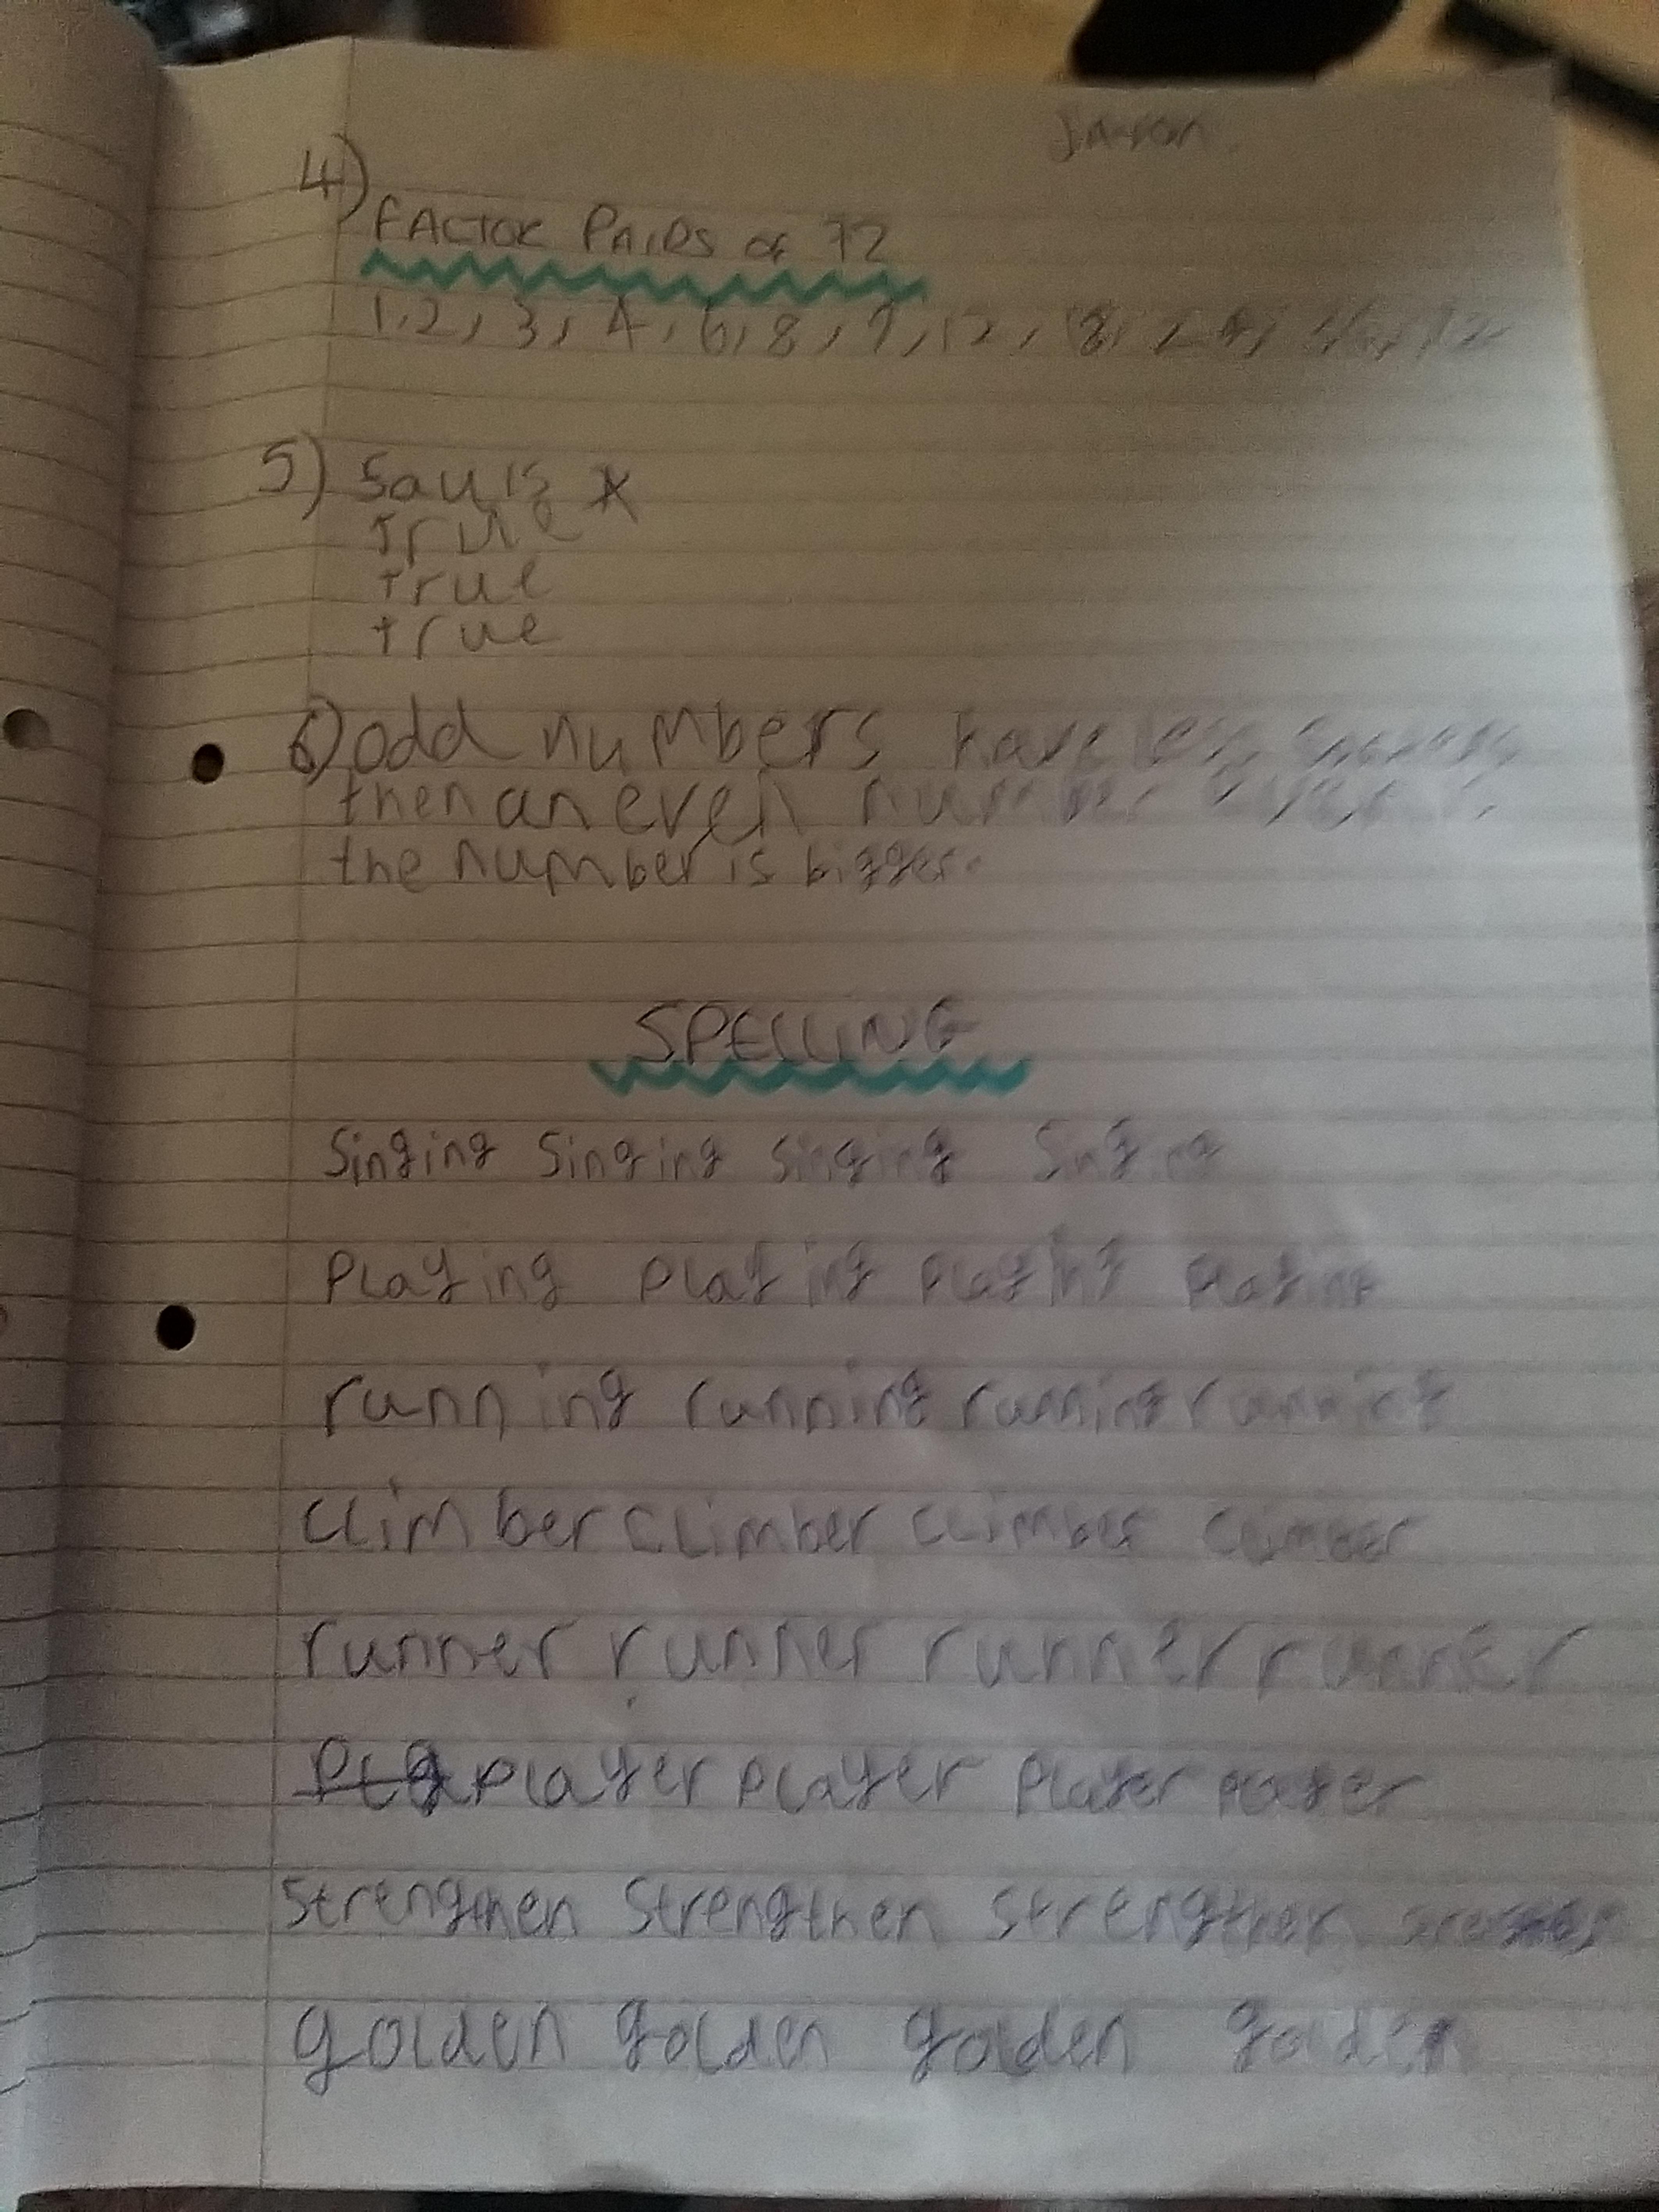 4)
FACTOR PAIRS OF 72
1,2, 3, 4, 6, 8, 9, 12, 18, 24, 36, 72
5)
true
true
true
6) odd numbers have less
then an even number even if
the number is bigger.
SPELLING
Singing Singing singing Singing
Playing playing playing playing
running running running running
climber climber climber climber
runner runner runner runner
player player player player
Strengthen Strengthen Strengthen
golden golden golden golden